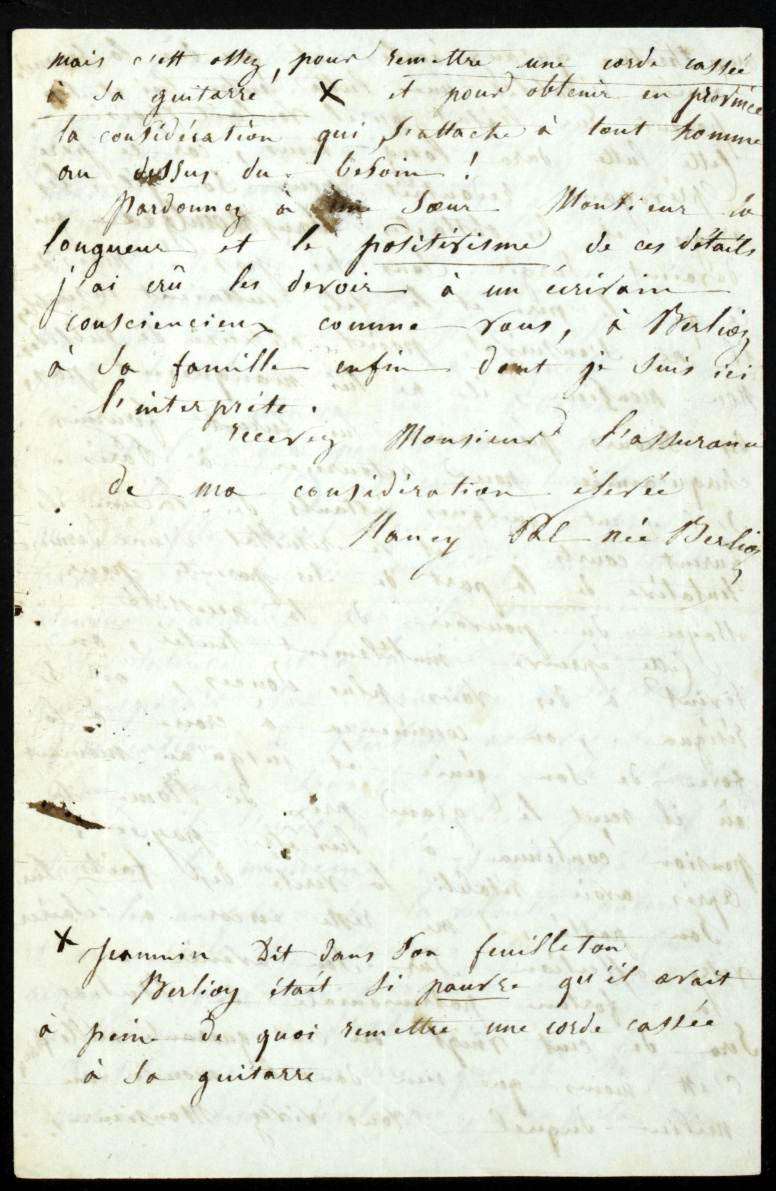 mais c'est assez, pour remettre une corde cassée
à sa guitarre X et pour obtenir en province
la considération qui s'attache à tout homme
au dessus du besoin !
Pardonnez à une sœur Monsieur la
longueur et le positivisme de ces détails
j'ai crû les devoir à un écrivain
consciencieux comme vous, à Berlioz
à sa famille enfin dont je suis ici
l'interprète.
recevez Monsieur l'assurance
de ma considération élevée
Nancy Pal née Berlioz
X Jeannin dit dans son feuilleton
Berlioz était si pauvre qu'il avait
à peine de quoi remettre une corde cassée
à sa guitarre